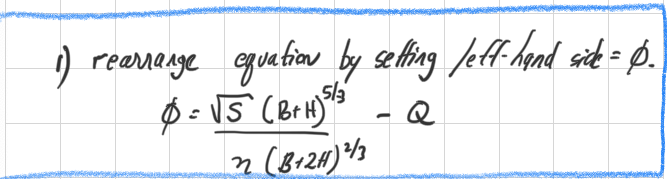 1) rearrange equation by setting left-hand side = 0.
0 = √S (B+H)^5/3 / n (B+2H)^2/3 - Q